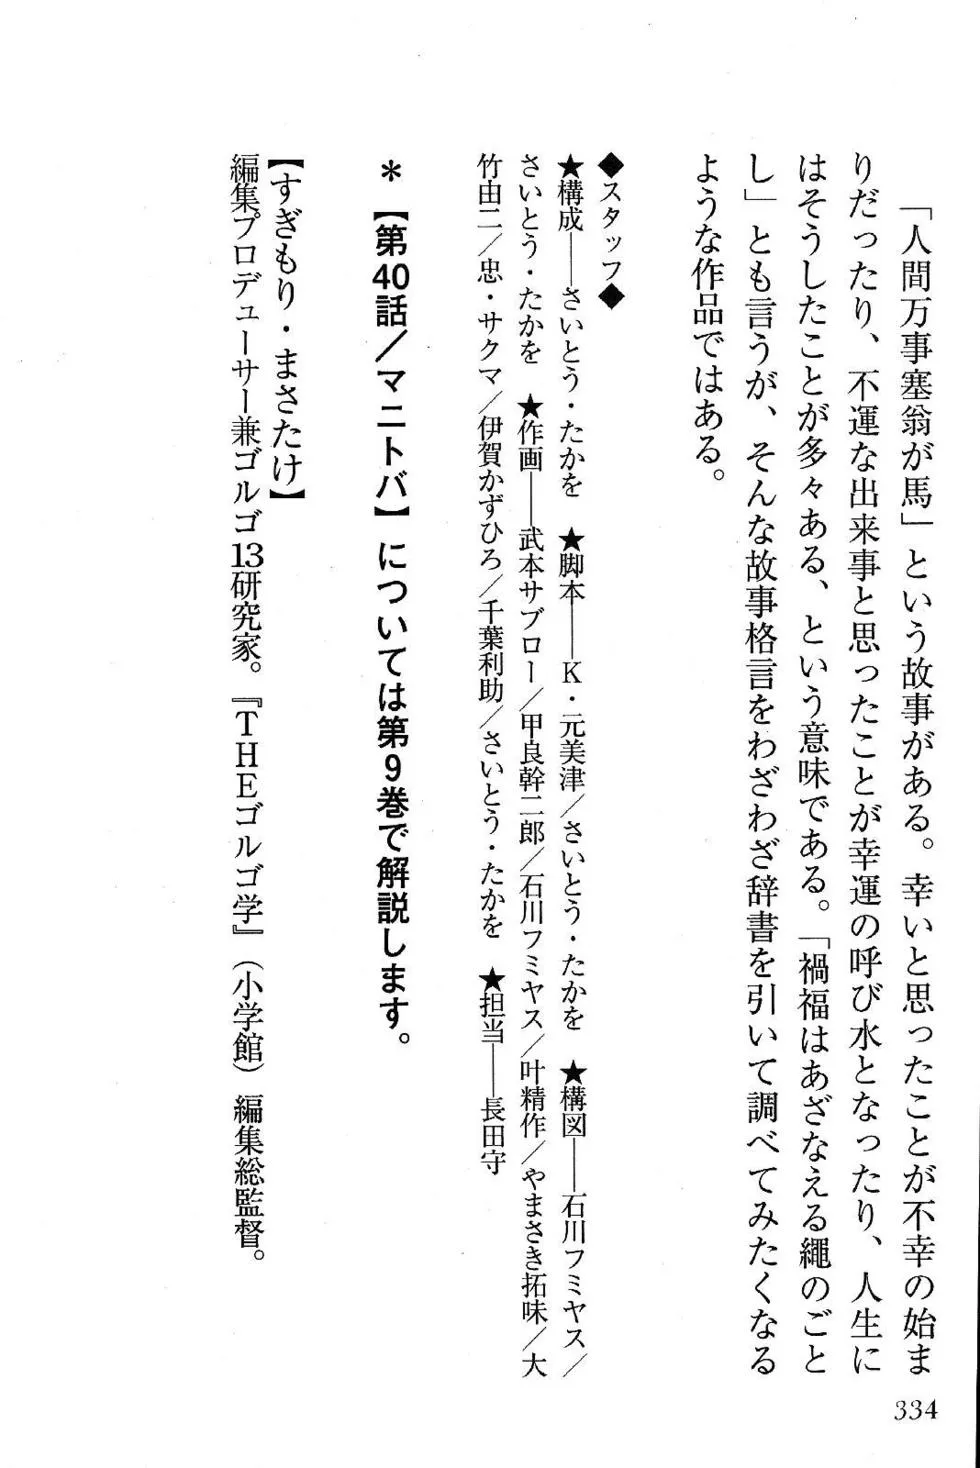 「人間万事塞翁が馬」という故事がある。幸いと思ったことが不幸の始ま
りだったり、不運な出来事と思ったことが幸運の呼び水となったり、人生に
はそうしたことが多々ある、という意味である。「禍福はあざなえる縄のごと
し」とも言うが、そんな故事格言をわざわざ辞書を引いて調べてみたくなる
ような作品ではある。
◆スタッフ◆
★構成──さいとう・たかを　★脚本──K・元美津／さいとう・たかを　★構図──石川フミヤス／
さいとう・たかを　★作画──武本サブロー／甲良幹二郎／石川フミヤス／叶精作／やまさき拓味／大
竹由二／忠・サクマ／伊賀かずひろ／千葉利助／さいとう・たかを　★担当──長田守
＊【第40話／マニトバ】については第9巻で解説します。
【すぎもり・まさたけ】
編集プロデューサー兼ゴルゴ13研究家。『THEゴルゴ学』（小学館）編集総監督。
334